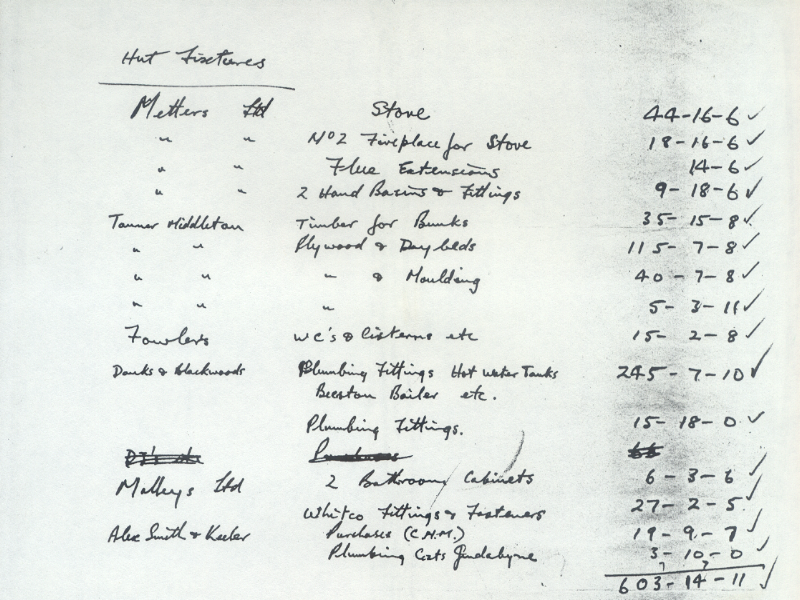 Hut Fixtures
Metters Ltd Stove 44-16-6 ✓
" " No2 Fireplace for Stove 18-16-6 ✓
" " Flue Extensions 14-6 ✓
" " 2 Hand Basins & Fittings 9-18-6 ✓
Tanner Middleton Timber for Bunks 35-15-8 ✓
" " Plywood & Day beds 115-7-8 ✓
" " " & Moulding 40-7-8 ✓
" " " 5-3-11 ✓
Fowlers WC's & Cisterns etc 15-2-8 ✓
Danks & Blackwoods Plumbing Fittings Hot Water Tanks 245-7-10 ✓
Beeston Boiler etc.
Plumbing Fittings. 15-18-0 ✓
Malleys Ltd 2 Bathroom Cabinets 6-3-6 ✓
Whitco Fittings & Fasteners 27-2-5 ✓
Alec Smith & Keeler Purchases (C.H.M.) 19-9-7 ✓
Plumbing Costs Jindabyne 3-10-0 ✓
603-14-11 ✓